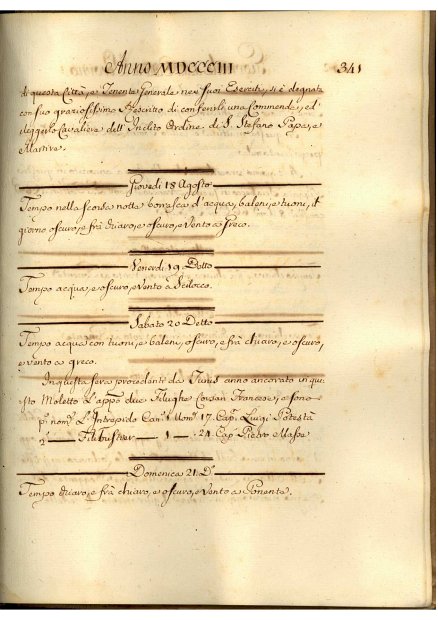 Anno MDCCCIII 341
di questa Città, e Tenente Generale nei suoi Eserciti, si è degnata
con suo graziosissimo Rescritto di conferirle una Commenda, ed
eleggerlo Cavaliere dell' Inclito Ordine di S. Stefano Papa, e
Martire.
Giovedì 18 Agosto
Tempo nella scorsa notte borrasca d'acqua, baleni, e tuoni, il
giorno oscuro, e frà chiaro, e oscuro, e vento a Greco.
Venerdì 19 Detto
Tempo acqua, e oscuro, e vento a Scilocco.
Sabato 20 Detto
Tempo acqua con tuoni, e baleni, oscuro, e frà chiaro, e oscuro,
e vento a greco.
In questa sera procedente da Tunis anno ancorato in que
sto Moletto L'app. due Filughe Corsare Francesi, e sono
p. nom. L'Intrepido Can. 1 Uom. 17. Cap. Luigi Podestà
2 — Flibustier — 1 — 24 Cap. Pietro
Domenica 21 D.
Tempo chiaro, e frà chiaro, e oscuro, e vento a Ponente.